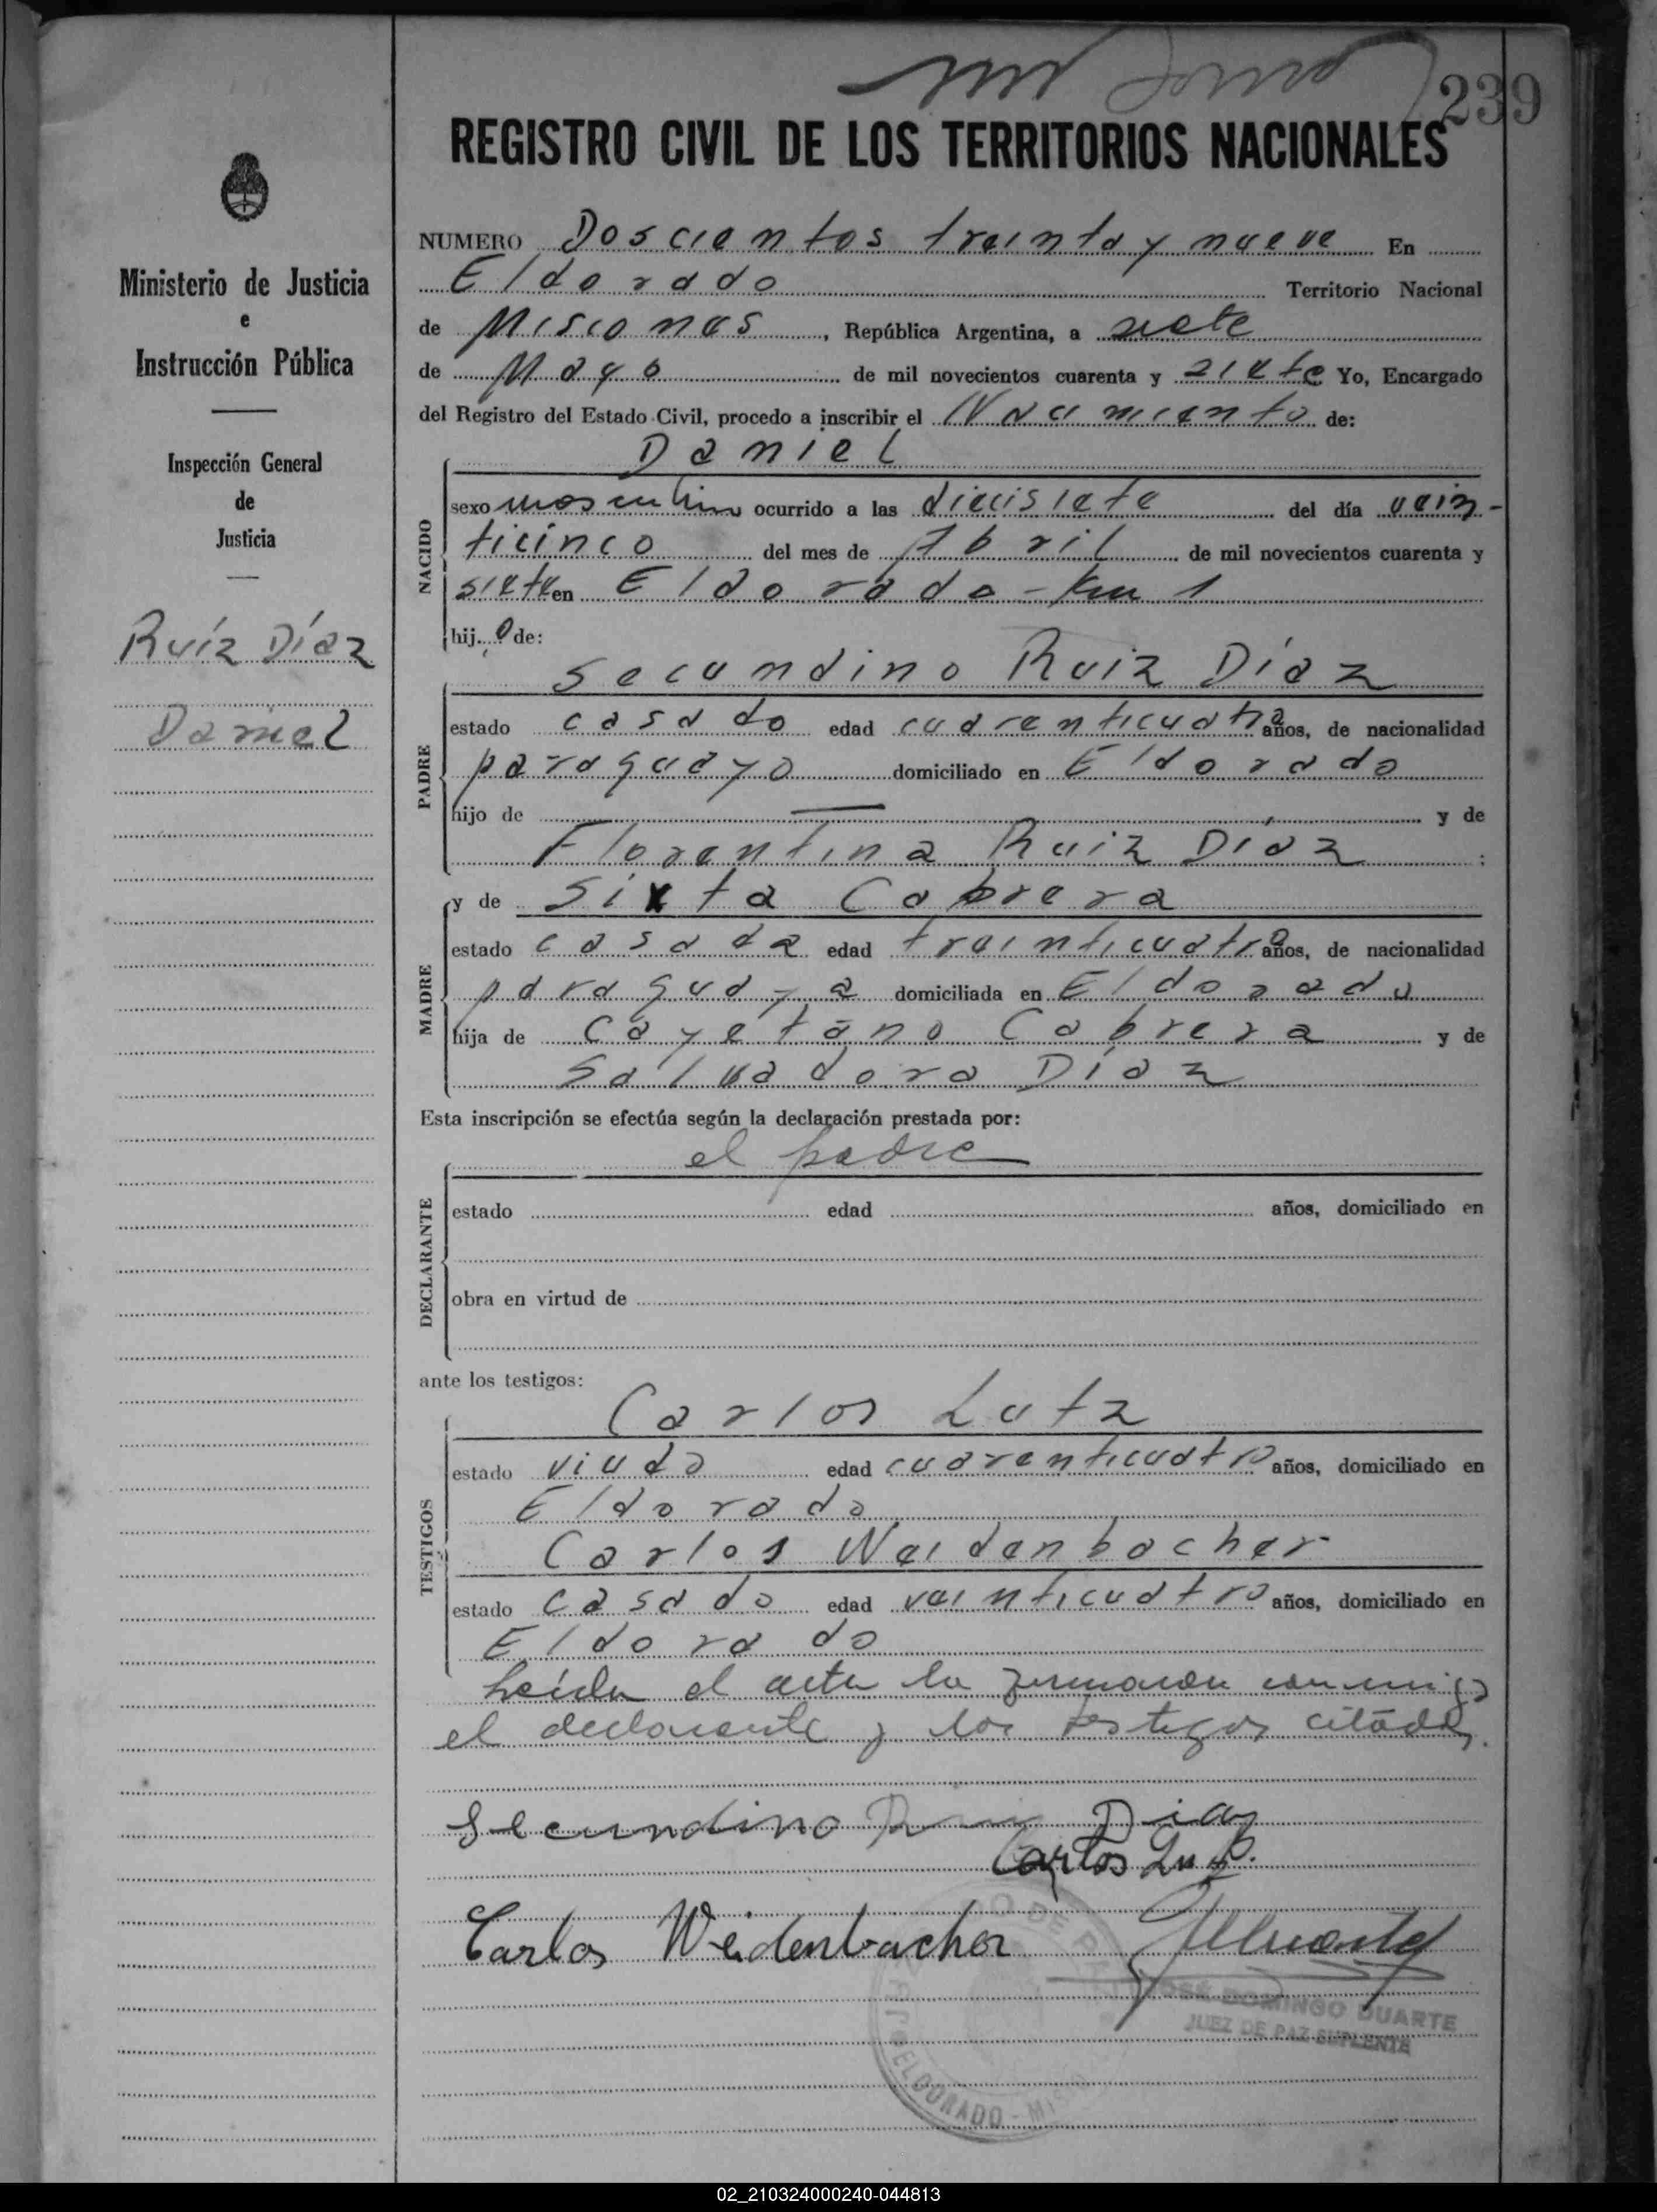 239
REGISTRO CIVIL DE LOS TERRITORIOS NACIONALES
Ministerio de Justicia
e
Instrucción Pública
Inspección General
de
Justicia
Ruíz Díaz
Daniel
NUMERO Doscientos treinta y nueve En
Eldorado Territorio Nacional
de Misiones, República Argentina, a siete
de Mayo de mil novecientos cuarenta y siete Yo, Encargado
del Registro del Estado Civil, procedo a inscribir el Nacimiento de:
Daniel
NACIDO
sexo masculino ocurrido a las diecisiete del día vein-
ticinco del mes de Abril de mil novecientos cuarenta y
siete en Eldorado - Km 1
hijo de:
Secundino Ruiz Díaz
PADRE
estado casado edad cuarenticuatro años, de nacionalidad
paraguayo domiciliado en Eldorado
hijo de — y de
Florentina Ruiz Díaz ;
y de Sixta Cabrera
MADRE
estado casada edad treinticuatro años, de nacionalidad
paraguaya domiciliada en Eldorado
hija de Cayetano Cabrera y de
Salvadora Díaz
Esta inscripción se efectúa según la declaración prestada por:
el padre
DECLARANTE
estado edad años, domiciliado en
obra en virtud de
ante los testigos:
Carlos Lutz
TESTIGOS
estado viudo edad cuarenticuatro años, domiciliado en
Eldorado
Carlos Weidenbacher
estado casado edad veinticuatro años, domiciliado en
Eldorado
Leída el acta la firmaron conmigo
el declarante y los testigos citados.
Secundino Ruiz Diaz
Carlos Lutz.
Carlos Weidenbacher
JOSÉ DOMINGO DUARTE
JUEZ DE PAZ SUPLENTE
ELDORADO - MIS
02_210324000240-044813